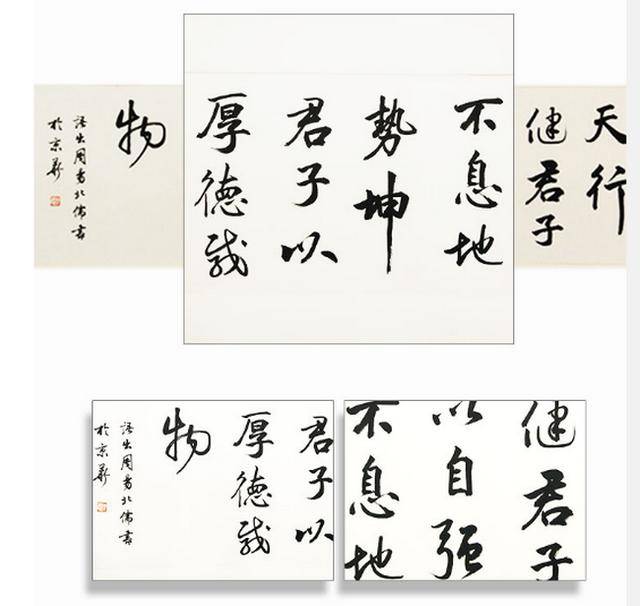 天行
健君子
不息地
勢坤
君子以
厚德载
物
语出周易北儒書
於京華
君子以
厚德载
物
语出周易北儒書
於京華
健君子
以自强
不息地